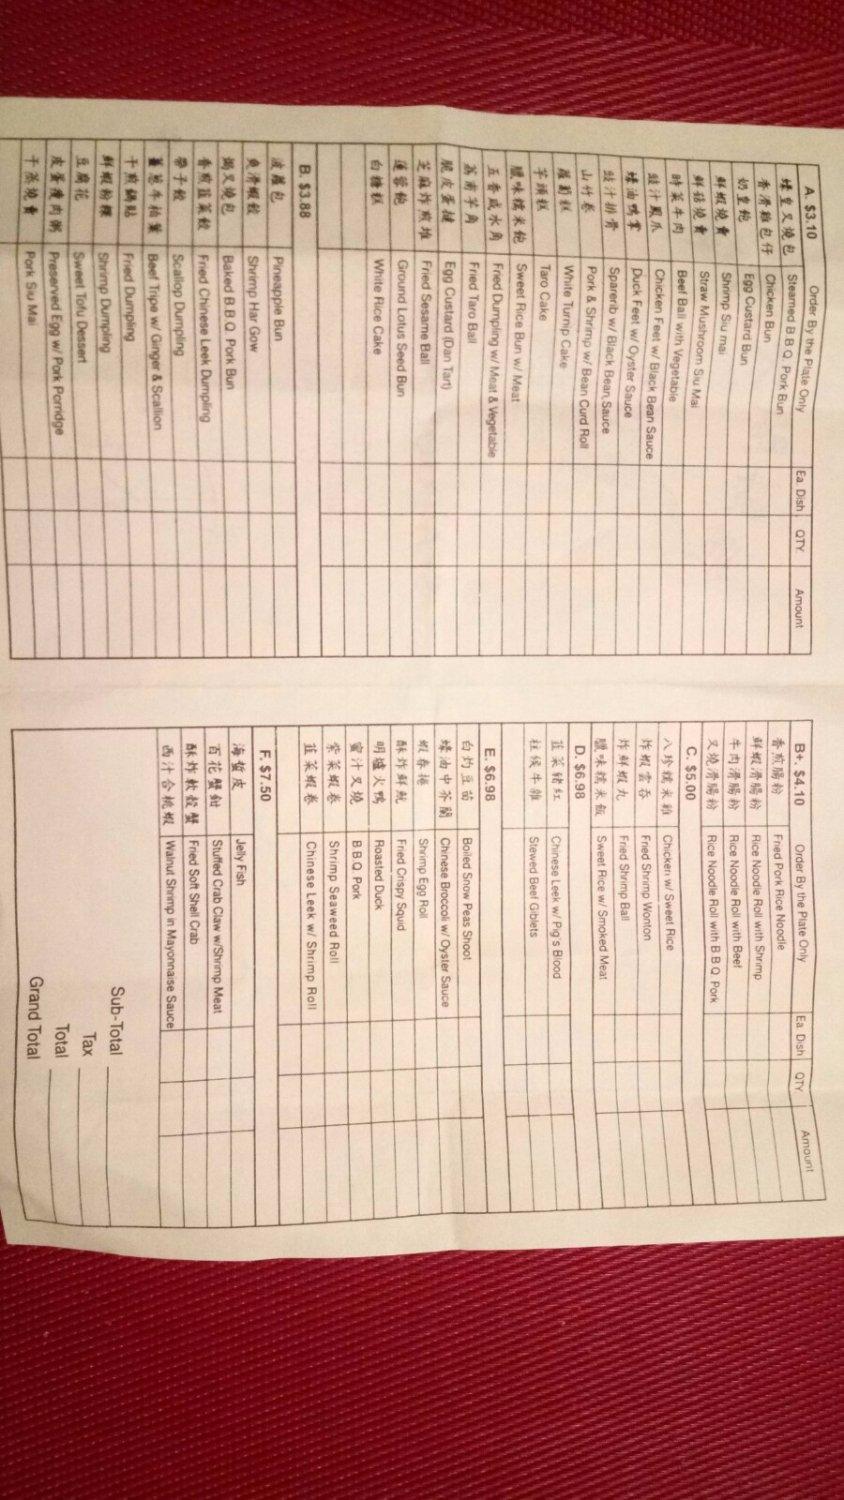 A. $3.10 Order By the Plate Only Ea Dish QTY. Amount
蜂皇叉燒包 Steamed B B Q. Pork Bun
香滑雞包仔 Chicken Bun
奶皇飽 Egg Custard Bun
鮮蝦燒賣 Shrimp Siu mai
鮮菇燒賣 Straw Mushroom Siu Mai
時菜牛肉 Beef Ball with Vegetable
豉汁鳳爪 Chicken Feet w/ Black Bean Sauce
蠔油鴨掌 Duck Feet w/ Oyster Sauce
豉汁排骨 Sparerib w/ Black Bean Sauce
山竹卷 Pork & Shrimp w/ Bean Curd Roll
蘿蔔糕 White Turnip Cake
芋頭糕 Taro Cake
臘味糯米飽 Sweet Rice Bun w/ Meat
五香咸水角 Fried Dumpling w/ Meat & Vegetable
荔甫芋角 Fried Taro Ball
脆皮蛋撻 Egg Custard (Dan Tart)
芝麻炸煎堆 Fried Sesame Ball
蓮蓉飽 Ground Lotus Seed Bun
白糖糕 White Rice Cake
B. $3.88
波蘿包 Pineapple Bun
爽滑蝦餃 Shrimp Har Gow
焗叉燒包 Baked B.B.Q. Pork Bun
香煎韮菜餃 Fried Chinese Leek Dumpling
帶子餃 Scallop Dumpling
薑蔥牛柏葉 Beef Tripe w/ Ginger & Scallion
干煎鍋貼 Fried Dumpling
鮮蝦粉粿 Shrimp Dumpling
豆腐花 Sweet Tofu Dessert
皮蛋瘦肉粥 Preserved Egg w/ Pork Porridge
干蒸燒賣 Pork Siu Mai
B+. $4.10 Order By the Plate Only Ea Dish QTY Amount
香煎腸粉 Fried Pork Rice Noodle
鮮蝦滑腸粉 Rice Noodle Roll with Shrimp
牛肉滑腸粉 Rice Noodle Roll with Beef
叉燒滑腸粉 Rice Noodle Roll with B B Q. Pork
C. $5.00
八珍糯米雞 Chicken w/ Sweet Rice
炸蝦雲吞 Fried Shrimp Wonton
炸鮮蝦丸 Fried Shrimp Ball
臘味糯米飯 Sweet Rice w/ Smoked Meat
D. $6.98
韮菜豬紅 Chinese Leek w/ Pig's Blood
柱候牛雜 Stewed Beef Giblets
E. $6.98
白灼豆苗 Boiled Snow Peas Shoot
蠔油中芥蘭 Chinese Broccoli w/ Oyster Sauce
蝦春捲 Shrimp Egg Roll
酥炸鮮魷 Fried Crispy Squid
明爐火鴨 Roasted Duck
蜜汁叉燒 B B Q. Pork
紫菜蝦卷 Shrimp Seaweed Roll
韮菜蝦卷 Chinese Leek w/ Shrimp Roll
F. $7.50
海蜇皮 Jelly Fish
百花蟹鉗 Stuffed Crab Claw w/Shrimp Meat
酥炸軟殼蟹 Fried Soft Shell Crab
西汁合桃蝦 Walnut Shrimp in Mayonnaise Sauce
Sub-Total
Tax
Total
Grand Total